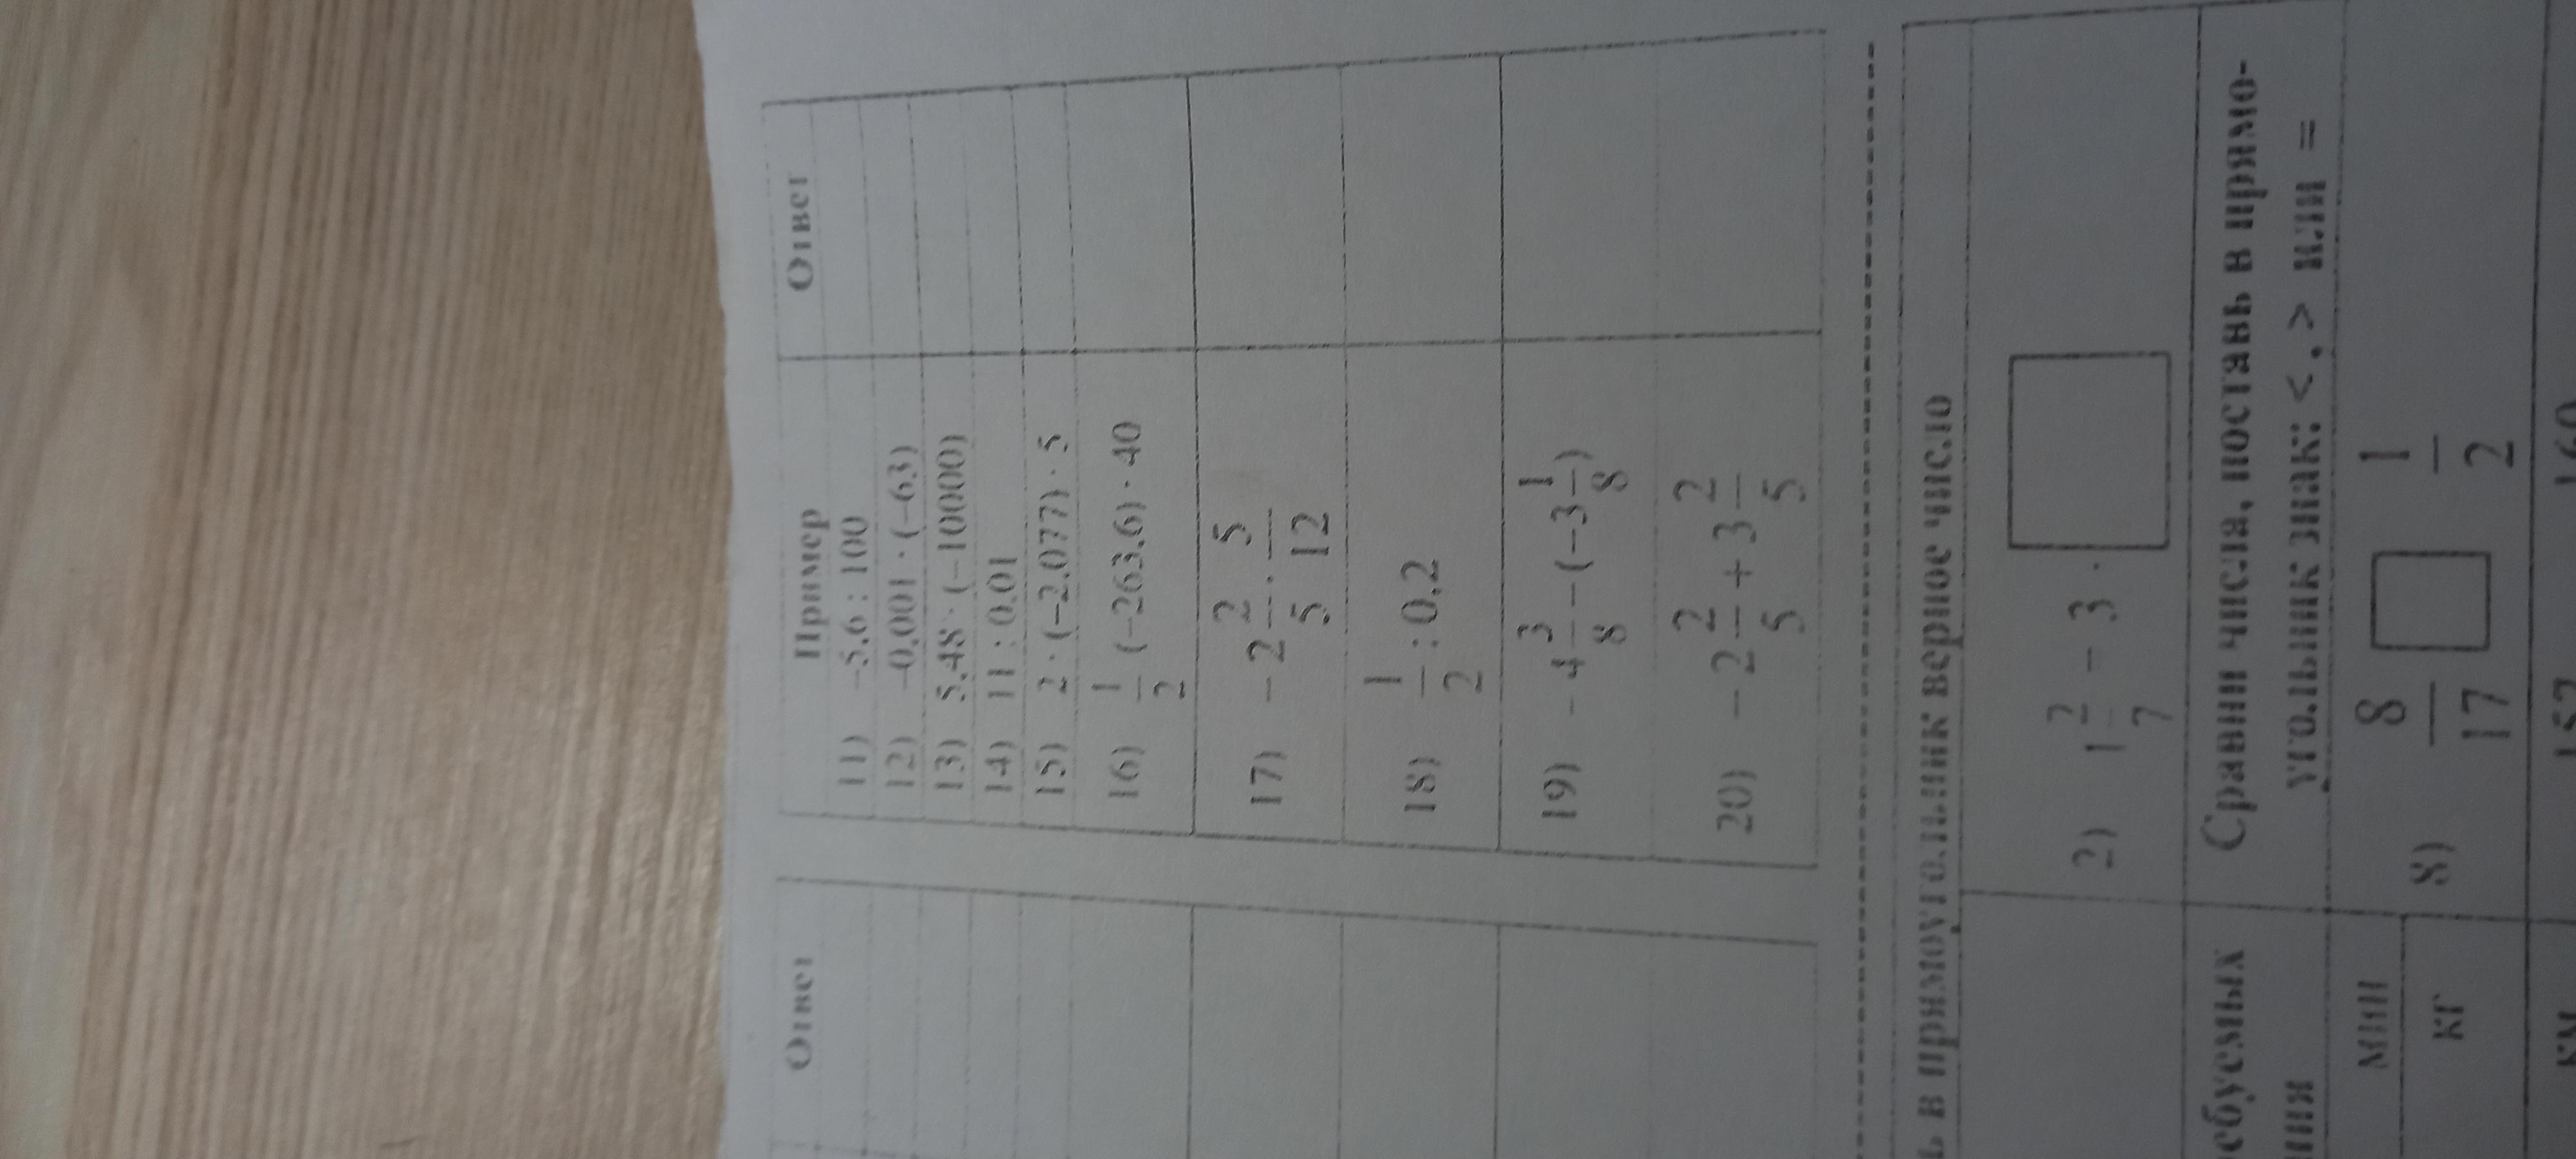 Ответ
Пример
Ответ
11) −5,6 : 100
12) −0,001 · (−63)
13) 5,48 · (−10000)
14) 11 : 0,01
15) 2 · (−2,077) · 5
16) 1/2 · (−263,6) · 40
17) −2 2/5 · 5/12
18) 1/2 : 0,2
19) −4 3/8 − (−3 1/8)
20) −2 2/5 + 3 2/5
ь в прямоугольник верное число
2) 1 2/7 = 3 ·
ебуемых
ния
Сравни числа, поставь в прямо-
угольник знак: < , > или =
мин
кг
8) 8/17 □ 1/2